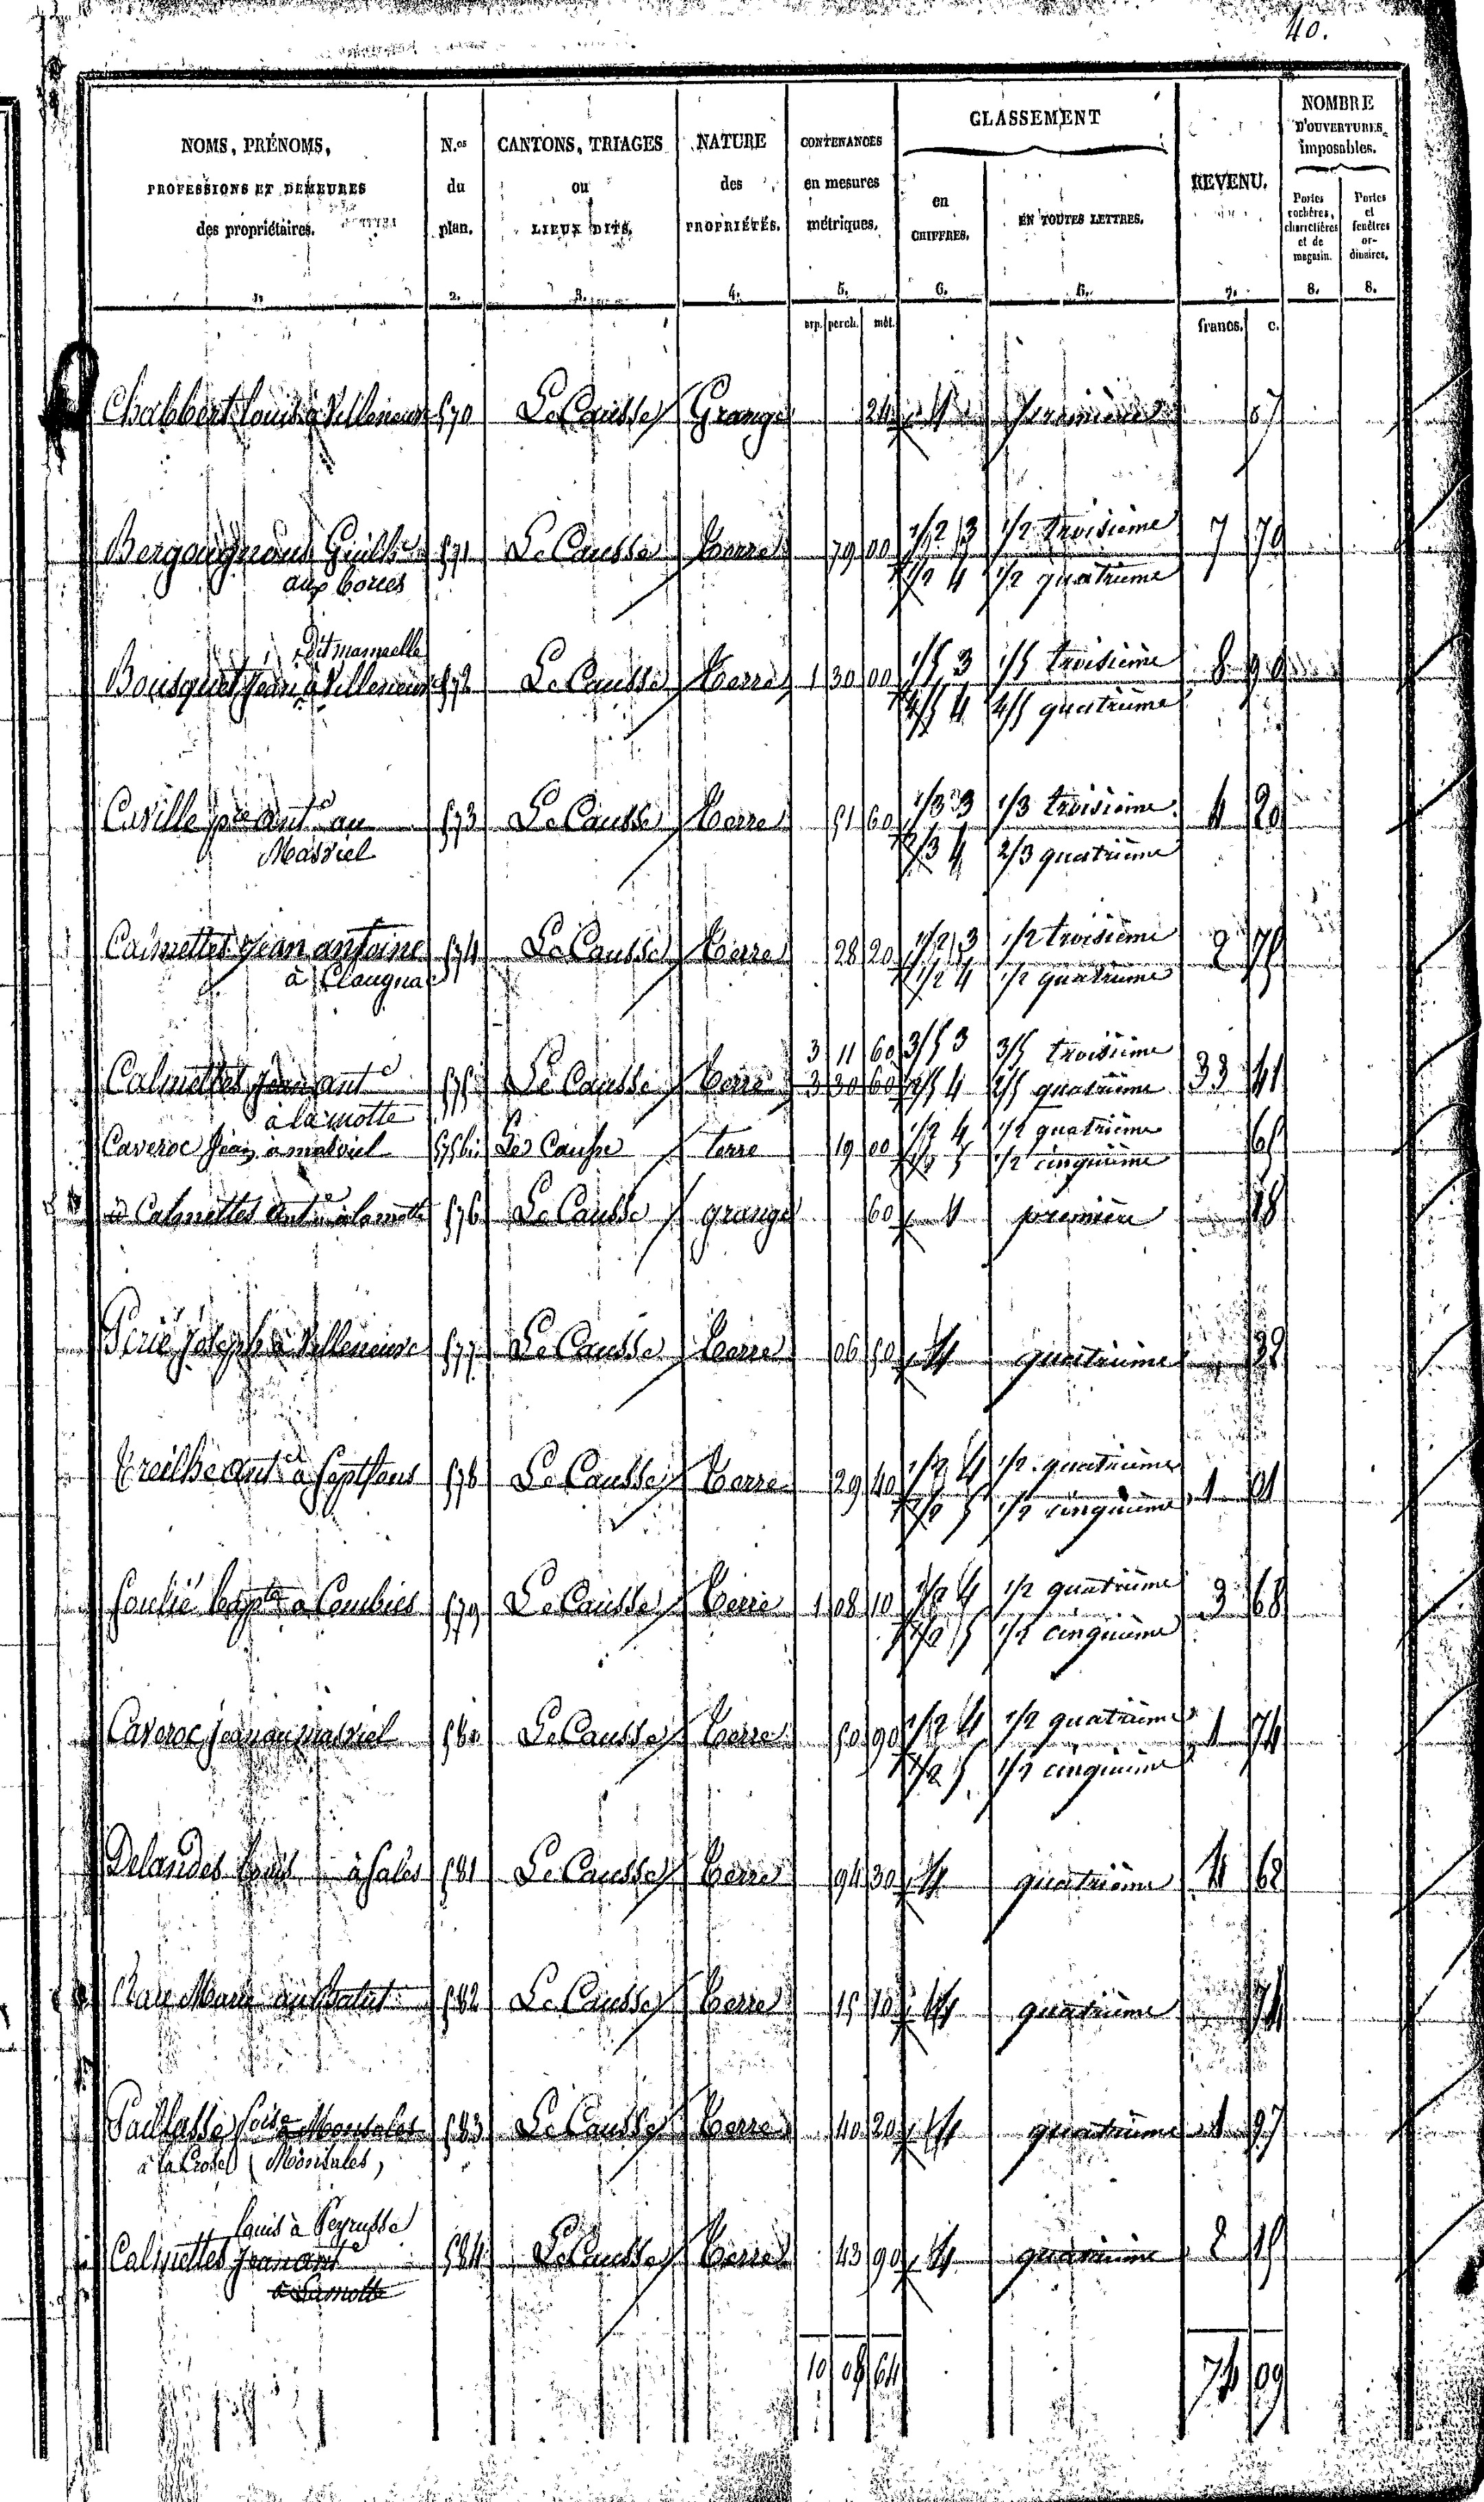 40.
NOMS, PRÉNOMS, PROFESSIONS ET DEMEURES des propriétaires. N.os du plan. CANTONS, TRIAGES ou LIEUX DITS. NATURE des PROPRIÉTÉS. CONTENANCES en mesures métriques. CLASSEMENT en CHIFFRES. EN TOUTES LETTRES. REVENU. NOMBRE D'OUVERTURES imposables. Portes cochères, charretières et de magasin. Portes et fenêtres ordinaires.
1. 2. 3. 4. 5. 6. 6. 7. 8. 8.
arp. perch. mèt. francs. c.
Chabbert louis à Villeneuve 570 Le Causse Grange 24 1 première 07
1/2 3 1/2 troisième
Bergougnoux 571 Le Causse terre 79 00 7 70
aux bories 1/2 4 1/2 quatrième
Dit mamaelle
1/5 3 1/5 troisième
Bousquet Jean à Villeneuve 572 Le Causse terre 1 30 00 8 90
4/5 4 4/5 quatrième
1/3 3 1/3 troisième
Caville pre ante au 573 Le Causse terre 51 60 4 20
Masviel 2/3 4 2/3 quatrième
1/2 3 1/2 troisième
Calmettes Jean antoine 574 Le Causse terre 28 20 2 75
à Claugnac 1/2 4 1/2 quatrième
3 11 60 3/5 3 3/5 troisième
Calmettes Jean ante 575 Le Causse terre 3 30 60 2/5 4 2/5 quatrième 33 41
à la motte
1/2 4 1/2 quatrième
Caveroc Jean à masviel 575 bis Le Causse terre 19 00 65
1/2 5 1/2 cinquième
id Calmettes ante à lamotte 576 Le Causse grange 60 1 première 18
Périé Joseph à Villeneuve 577 Le Causse terre 06 50 4 quatrième 32
1/2 4 1/2 quatrième
Treilhe ante à Septfons 578 Le Causse terre 29 40 1 01
1/2 5 1/2 cinquième
1/2 4 1/2 quatrième
Soulié bapte à Combies 579 Le Causse terre 1 08 10 3 68
1/2 5 1/2 cinquième
1/2 4 1/2 quatrième
Caveroc Jean au masviel 580 Le Causse terre 50 90 1 74
1/2 5 1/2 cinquième
Delandes louis à Sales 581 Le Causse terre 94 30 4 quatrième 4 62
Marie au Batut 582 Le Causse terre 15 10 4 quatrième 74
Paillasse à Monsales 583 Le Causse terre 40 20 4 quatrième 1 97
à la Crose (Monsales)
louis à Peyrusse
Calmettes Jean ante 584 Le Causse terre 43 90 4 quatrième 2 15
à Lamotte
10 08 64 74 09